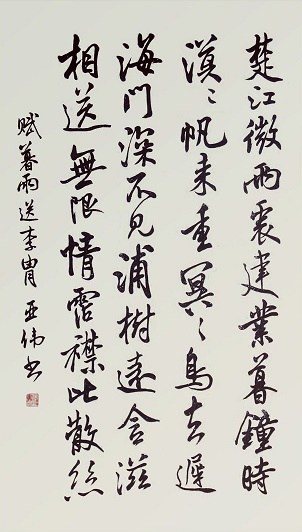 楚江微雨裏建業暮鐘時
漠〻帆来重冥〻鳥去遲
海門深不見浦樹遠含滋
相送無限情霑襟比散絲
賦暮雨送李胄 亚偉书